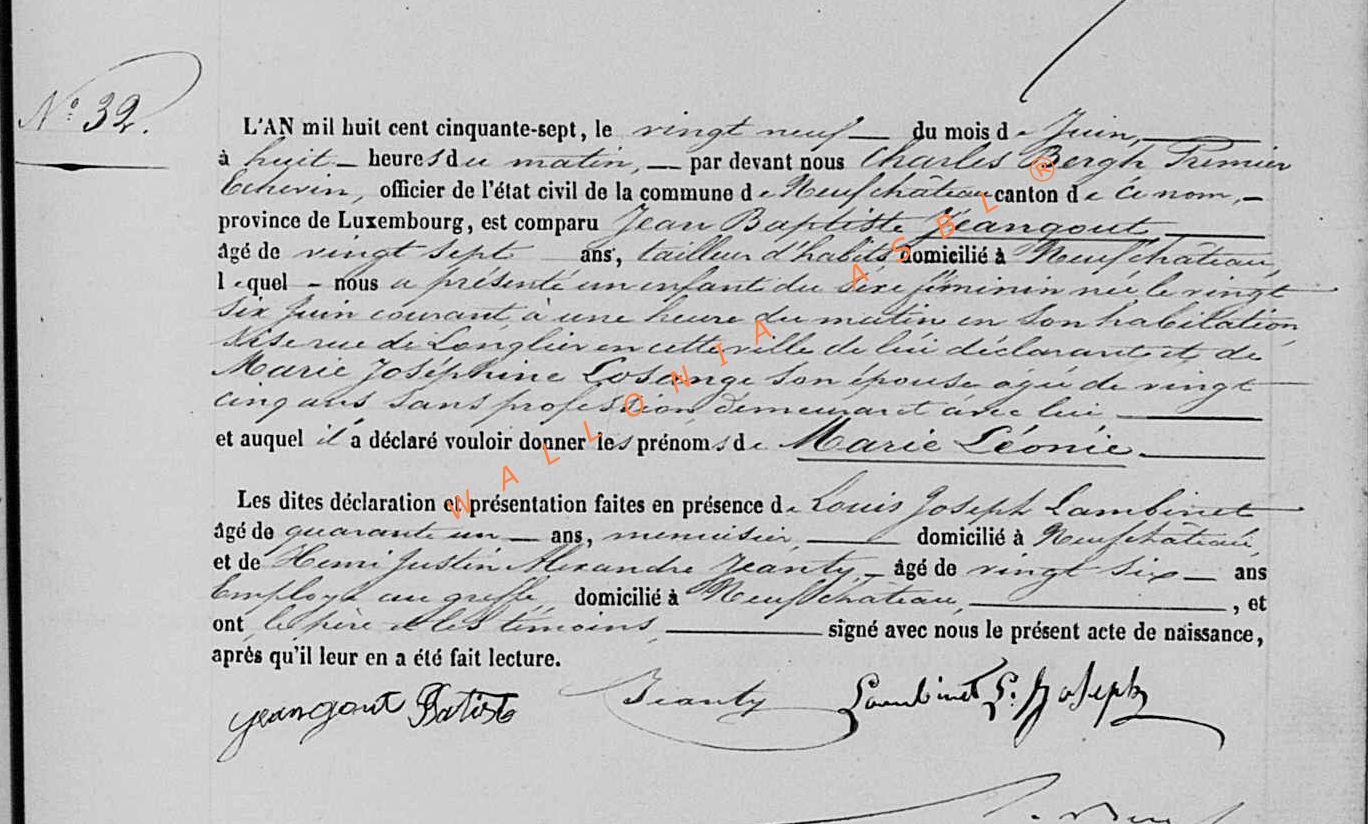 N° 32.
L'AN mil huit cent cinquante-sept, le vingt neuf du mois de Juin,
à huit heures du matin, par devant nous Charles Bergh Premier
Echevin, officier de l'état civil de la commune de Neufchâteau canton de ce nom,
province de Luxembourg, est comparu Jean Baptiste Jeangout
âgé de vingt sept ans, tailleur d'habits domicilié à Neufchâteau,
lequel nous a présenté un enfant du sexe féminin née le vingt
six Juin courant à une heure du matin en son habitation
sise rue de Longlier en cette ville de lui déclarant et de
Marie Joséphine Losange son épouse agée de vingt
cinq ans sans profession, demeurant avec lui
et auquel il a déclaré vouloir donner les prénoms de Marie Léonie.
Les dites déclaration et présentation faites en présence de Louis Joseph Lambinet
âgé de quarante un ans, menuisier, domicilié à Neufchâteau,
et de Henri Justin Alexandre Jeanty, âgé de vingt six ans
Employé au greffe domicilié à Neufchâteau, , et
ont le père et les témoins, signé avec nous le présent acte de naissance,
après qu'il leur en a été fait lecture.
jeangout Batiste Jeanty Lambinet L. Joseph
WALLONIA ASBL ®